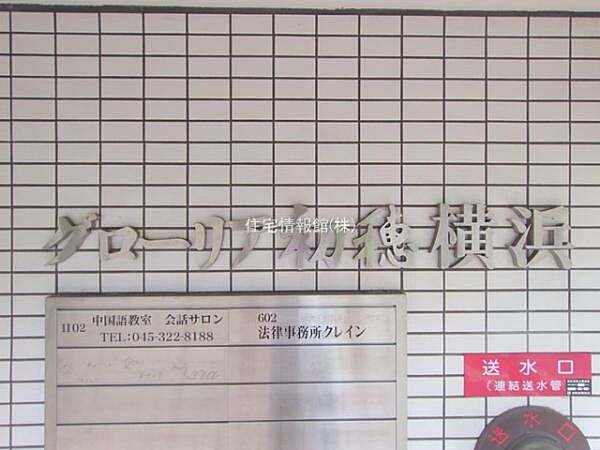 グローリア初穂横浜
住宅情報館(株)
1102 中国語教室 会話サロン
TEL:045-322-8188
602
法律事務所クレイン
送水口
(連結送水管)
送水口